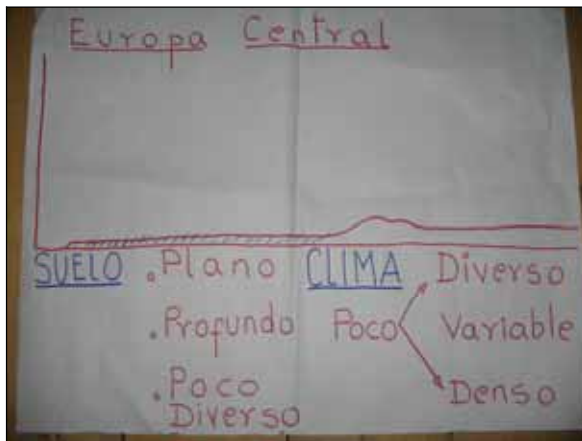 Europa Central
SUELO
. Plano
. Profundo
. Poco
Diverso
CLIMA
Poco
Diverso
Variable
Denso